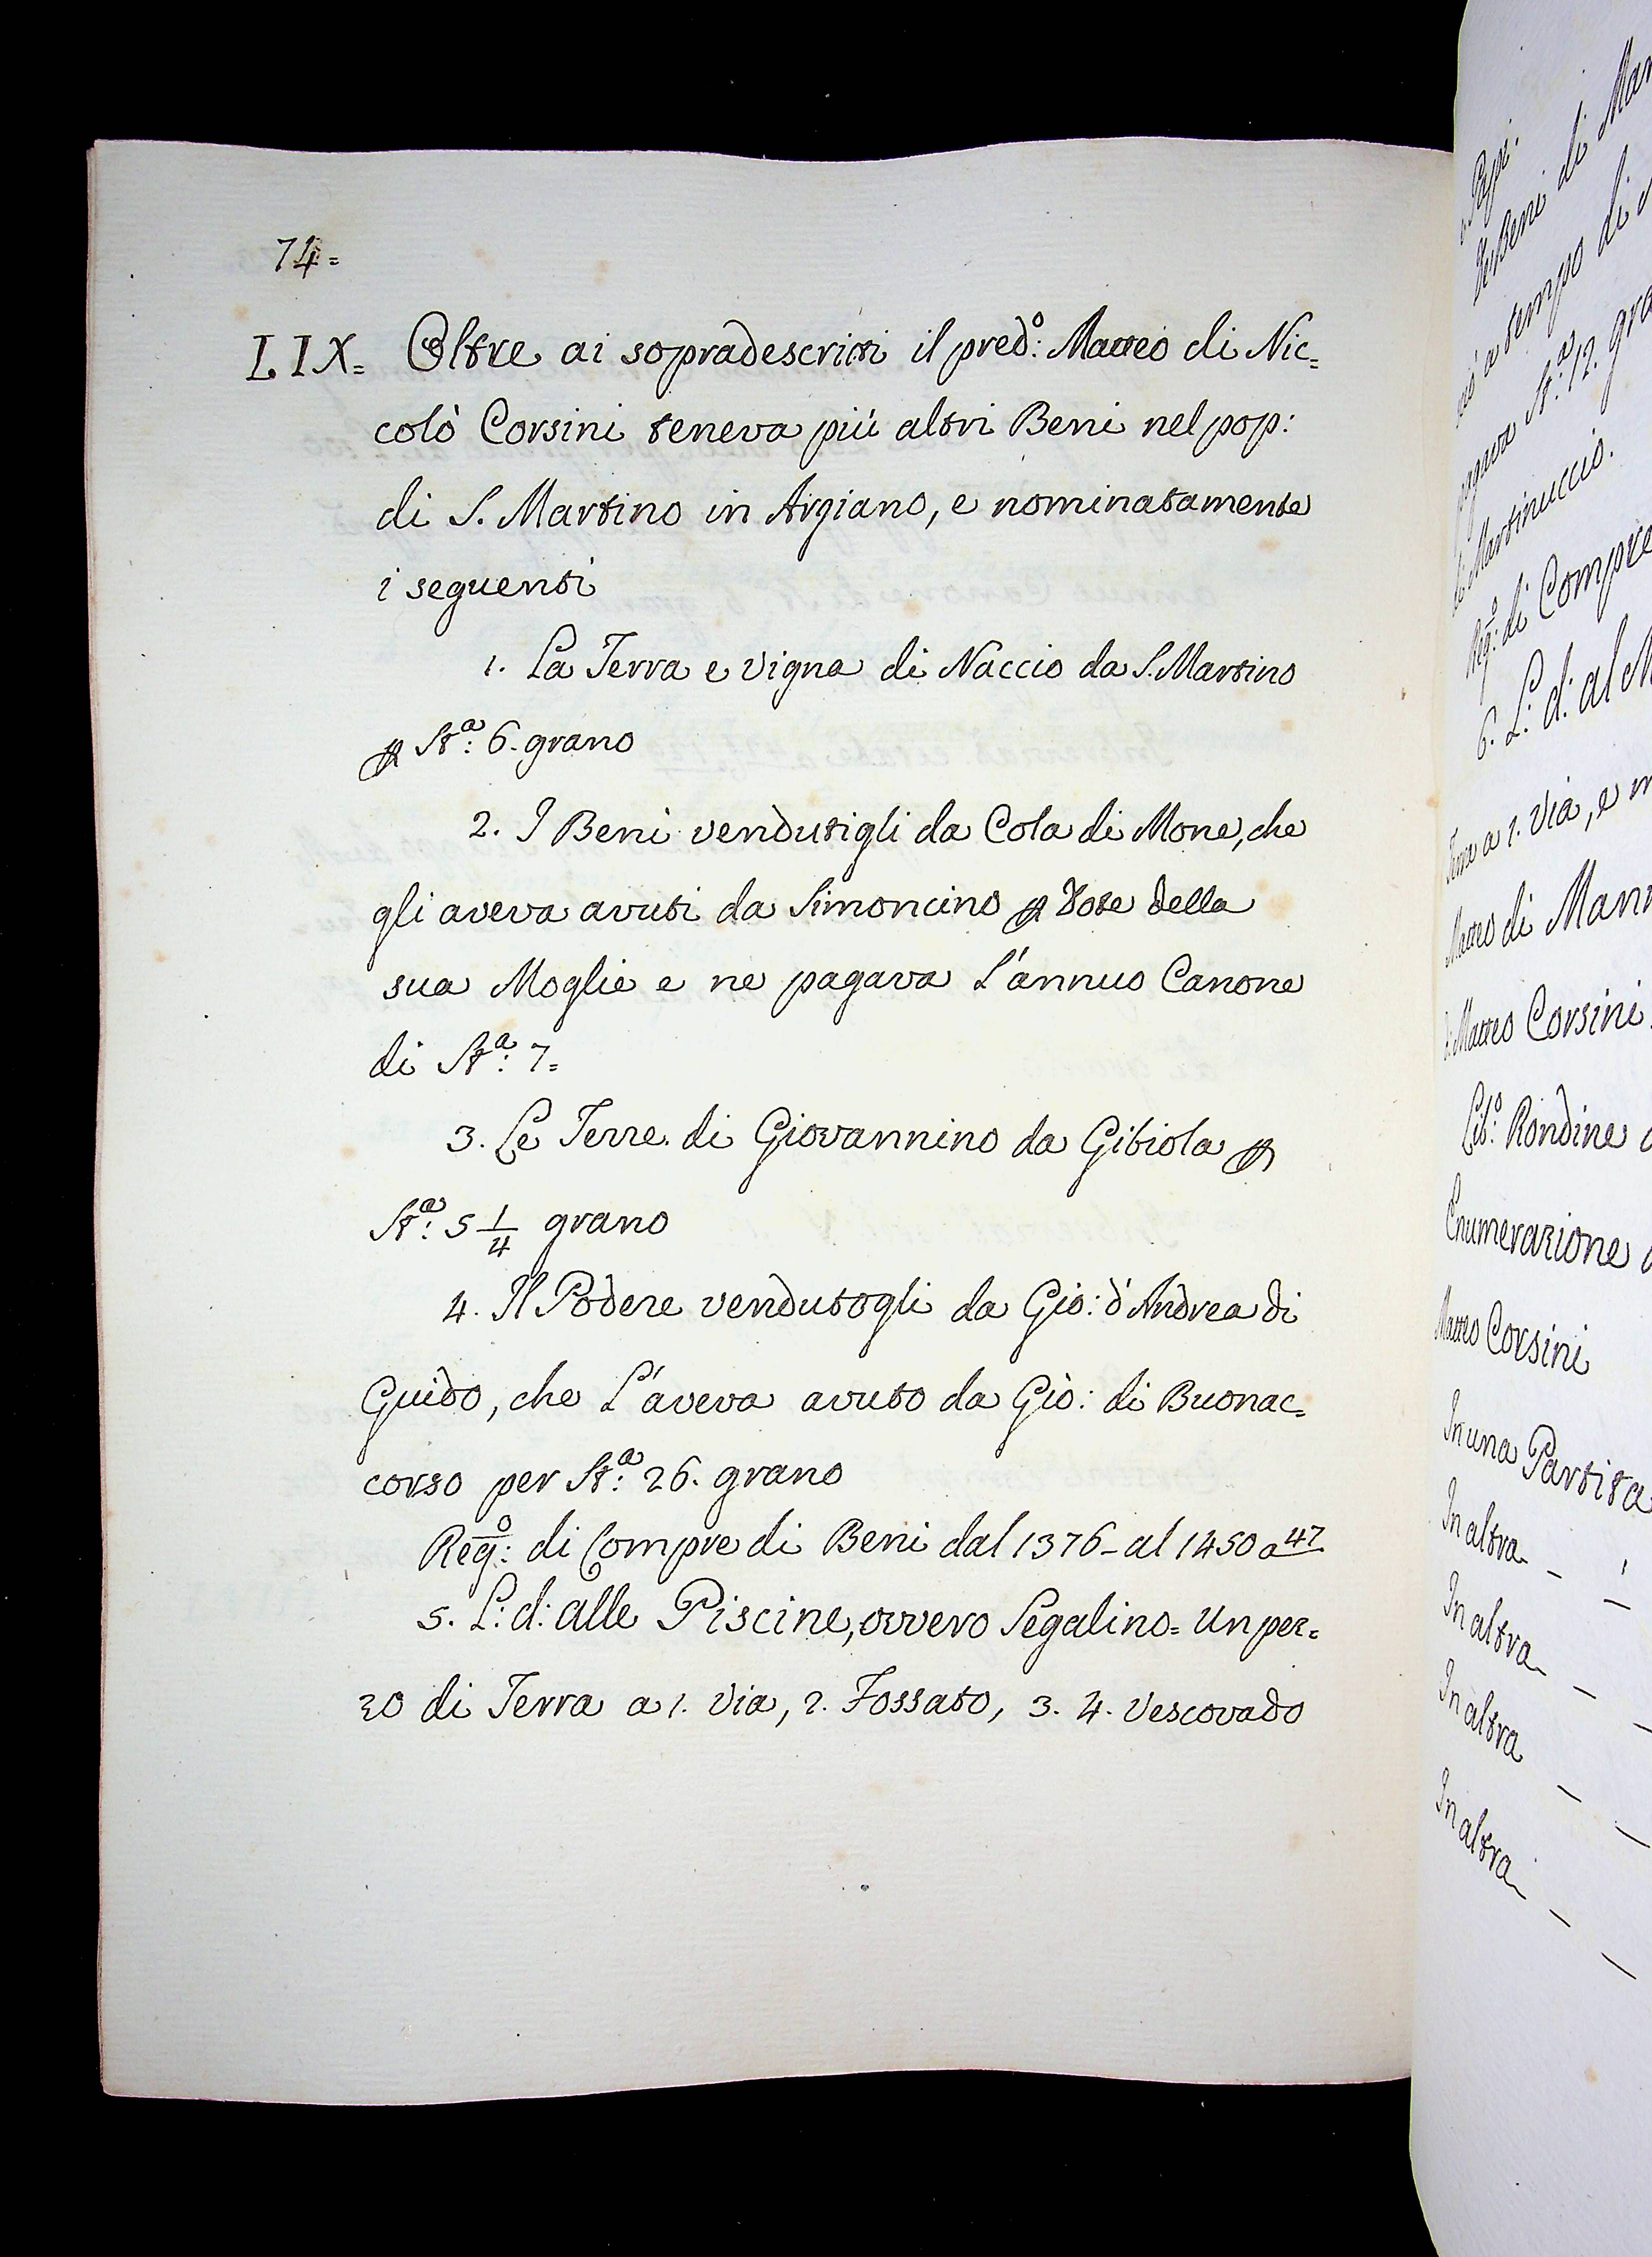 74=
LIX= Oltre ai sopradescritti il pred:º Matteo di Nic=
colò Corsini teneva più altri Beni nel pop:
di S. Martino in Argiano, e nominatamente
i seguenti
1. La Terra e Vigna di Naccio da S. Martino
p St:ª 6. grano
2. I Beni vendutigli da Cola di Mone, che
gli aveva avuti da Simoncino p Dote della
sua Moglie e ne pagava l'annuo Canone
di St:ª 7=
3. Le Terre di Giovannino da Gibiola p
St:ª 5 1/4 grano
4. Il Podere vendutogli da Gio: d'Andrea di
Guido, che l'aveva avuto da Gio: di Buonac=
corso per St:ª 26. grano
Reg:º di Compre di Beni dal 1376 - al 1450 a 47
5. L: d: alle Piscine, ovvero Segalino= Un pez=
zo di Terra a 1. Via, 2. Fossato, 3. 4. Vescovado
Beni di
a tempo di
St:ª 12.
di Martinuccio.
Reg:º di Compre
6. L: d: al
a 1. Via, e
Matteo di
Matteo Corsini
Lib:º Rondine
Enumerazione
Matteo Corsini
In una Partita
In altra
In altra
In altra
In altra